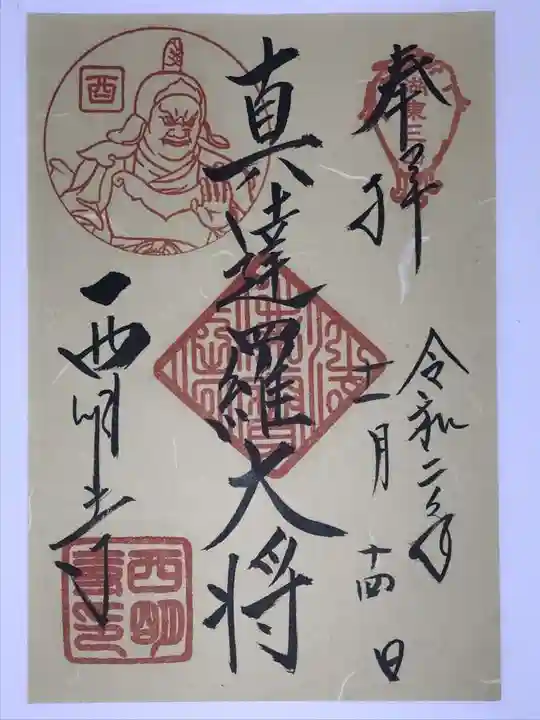 奉拝
湖東三
令和二年
十一月十四日
真達羅大将
酉
西明寺
西明